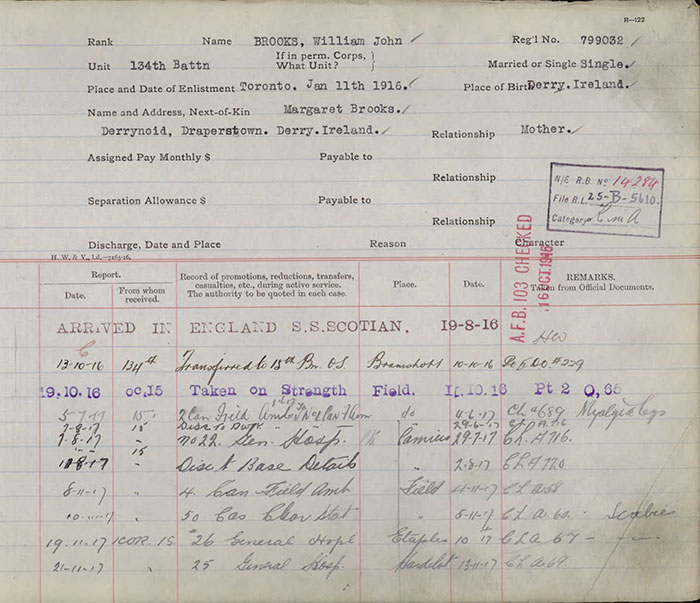 R-122
Rank Name BROOKS, William John Reg'l No. 799032
Unit 134th Battn If in perm. Corps, What Unit? Married or Single Single.
Place and Date of Enlistment Toronto. Jan 11th 1916. Place of Birth Derry.Ireland.
Name and Address, Next-of-Kin Margaret Brooks.
Derrynoid, Draperstown. Derry.Ireland. Relationship Mother.
Assigned Pay Monthly $ Payable to
Relationship
Separation Allowance $ Payable to
Relationship
N/E R.B. No 14284
File R.L. 25-B-5610.
Category
Discharge, Date and Place Reason Character
A.F.B. 103 CHECKED
16 OCT 1916
H. W. & V., Ld.—7165-16.
Report. Record of promotions, reductions, transfers, casualties, etc., during active service. The authority to be quoted in each case. Place. Date. REMARKS. Taken from Official Documents.
Date. From whom received.
ARRIVED IN ENGLAND S.S.SCOTIAN. 19-8-16
13-10-16 134th Transferred to 15th Bn. O.S. Bramshott 10-10-16 #229
19.10.16 oc.15 Taken on Strength Field. 11.10.16 Pt 2 O,65
5-7-17 15 2 Can Field Amb do 4-6-17 Myalgia Legs
7-8-17 15 Disc to Duty 29-6-17
7-8-17 No 22. Gen. Hosp. Camiers 29-7-17 C L A 716.
15
10-8-17 Disc to Base Details 2-8-17 C L A 720
8-11-17 4. Can Field Amb Field 4-11-17 C L A
10-11-17 50 Cas Clear Stat 5-11-17 C L A 60. Scabies
19-11-17 26 General Hospl Etaples 10 C L A 67
21-11-17 25 General Hosp. Hardelot 13-11-17 C L A 69